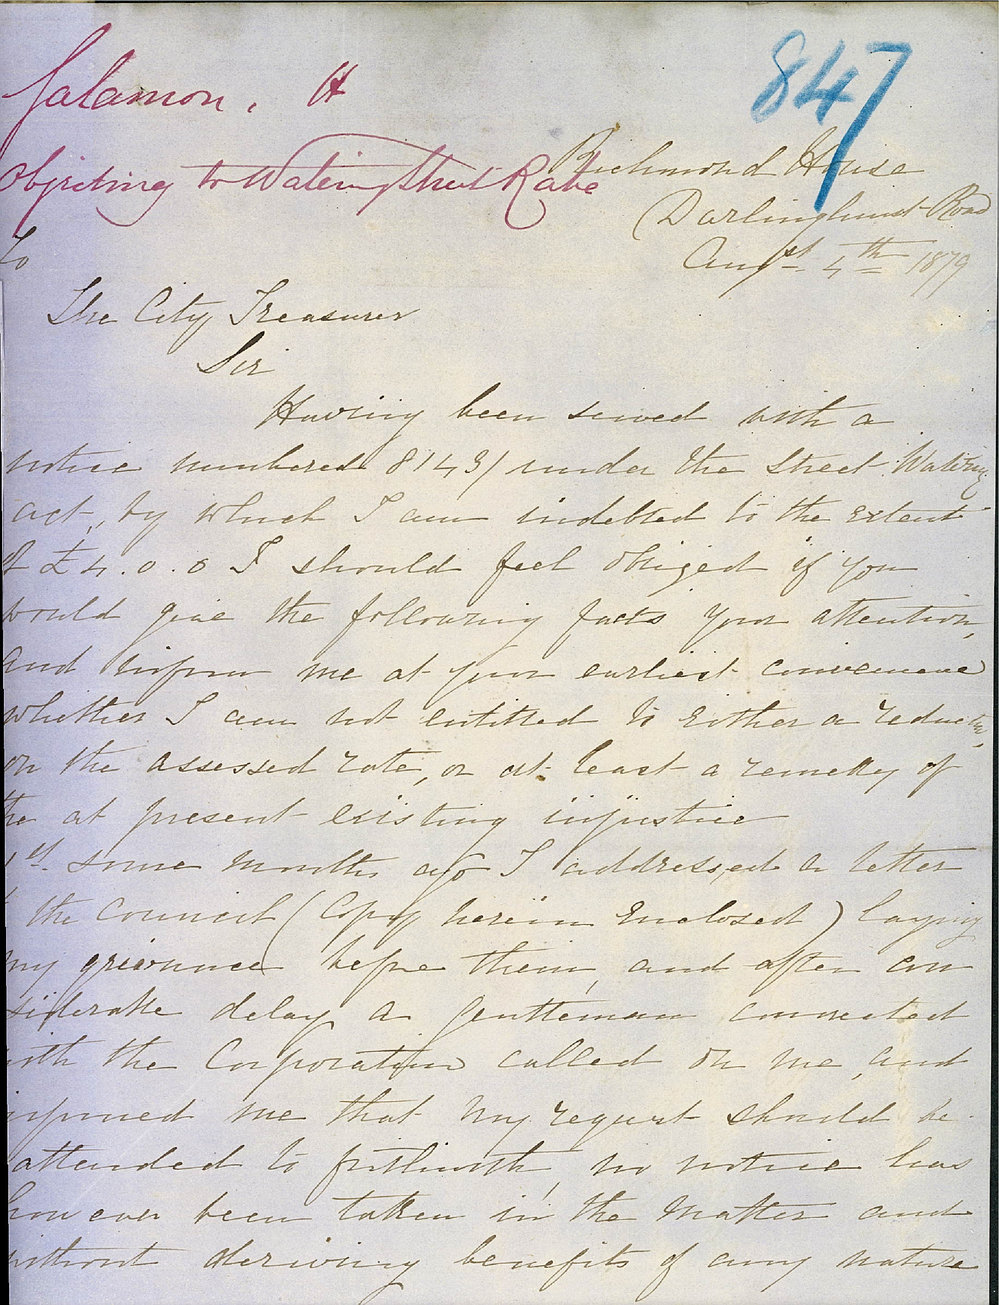 847
Salamon. H
Objecting to Watering Street Rate
Richmond House
Darlinghurst Road
Augst. 4th 1879
To
The City Treasurer
Sir
Having been served with a
notice numbered 8143/ under the Street Watering
act, by which I am indebted to the extent
of £4.0.0 I should feel obliged if you
would give the following facts your attention,
and inform me at your earliest convenience
whether I am not entitled to either a reduction
on the assessed rate, or at least a remedy of
the at present existing injustice
1st. Some months ago I addressed a letter
the Council (Copy herein Enclosed) laying
my grievance before them, and after con
siderable delay a gentleman connected
with the Corporation called on me, and
informed me that my request should be
attended to forthwith, no notice has
however been taken in the Matter and
without deriving benefits of any nature